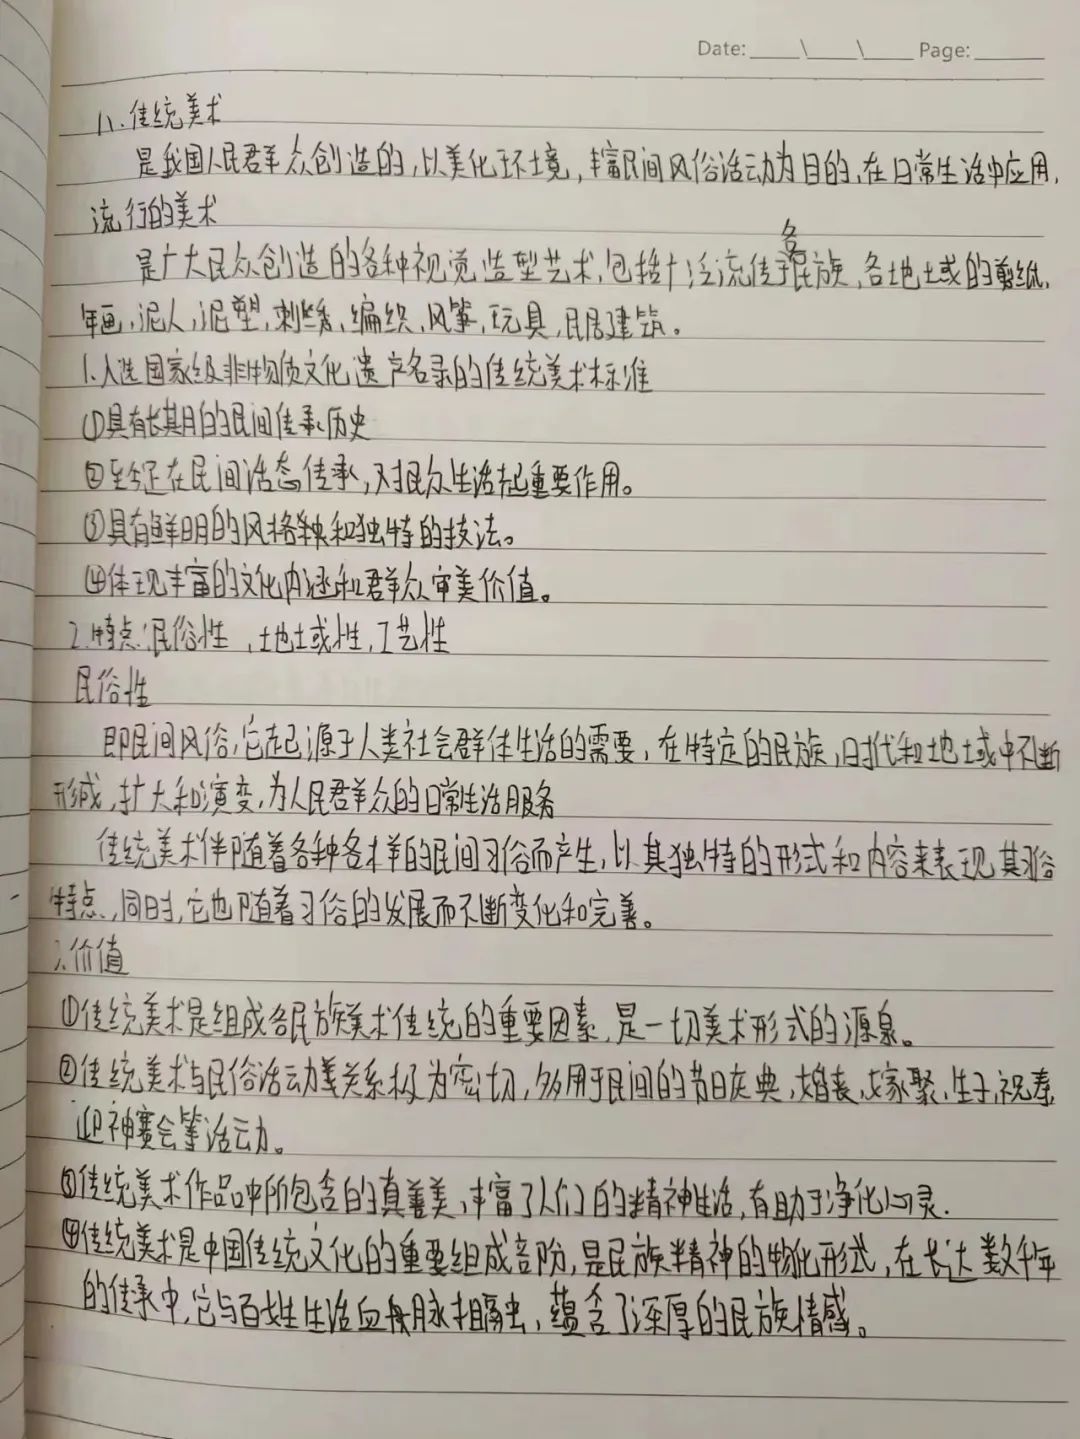 Date: ____\____\____ Page: ______
八.传统美术
是我国人民群众创造的,以美化环境,丰富民间风俗活动为目的,在日常生活中应用,
流行的美术
各
是广大民众创造的各种视觉造型艺术,包括广泛流传于民族,各地土或的剪纸,
年画,泥人,泥塑,刺绣,编织,风筝,玩具,民居建筑。
1.入选国家级非物质文化遗产名录的传统美术标准
①具有长期的民间传承历史
②至今还在民间活态传承,对民众生活起重要作用。
③具有鲜明的风格和独特的技法。
④体现丰富的文化内涵和群众审美价值。
2.特点:民俗性,地土或性,工艺性
民俗性
即民间风俗,它起源于人类社会群体生活的需要,在特定的民族,时代和地土或中不断
形成,扩大和演变,为人民群众的日常生活服务
传统美术伴随着各种各样的民间习俗而产生,以其独特的形式和内容来表现其习俗
特点,同时,它也随着习俗的发展而不断变化和完善。
3.价值
①传统美术是组成各民族美术传统的重要因素,是一切美术形式的源泉。
②传统美术与民俗活动关系极为密切,多用于民间的节日庆典,婚丧,嫁聚,生子,祝寿
迎神赛会等活动。
③传统美术作品中所包含的真善美,丰富了人们的精神生活,有助于净化心灵.
④传统美术是中国传统文化的重要组成部份,是民族精神的物化形式,在长达数千年
的传承中,它与百姓生活血脉相融,蕴含了深厚的民族情感。